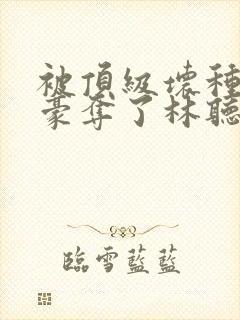 被頂級壞種
豪奪了林聽
臨雪藍藍